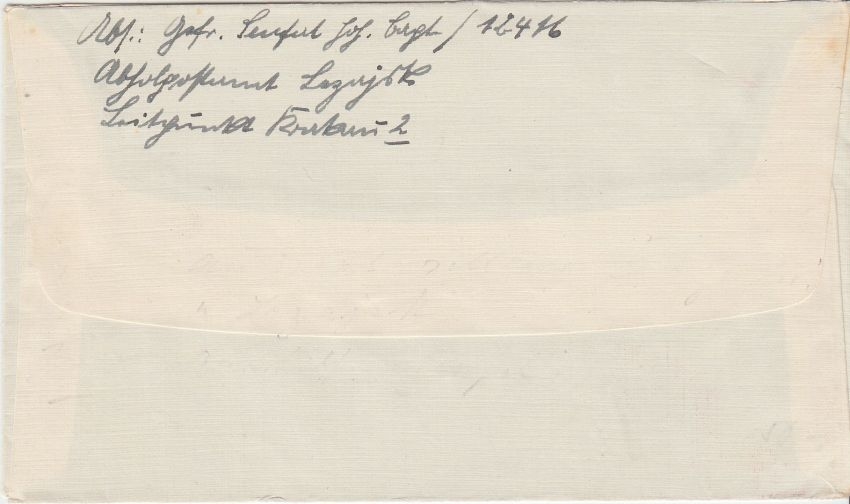 Abs.: Gefr. Senfert Joh. Bapt / 12416
Abholpostamt Lezajsk
Leitpunkt Krakau 2